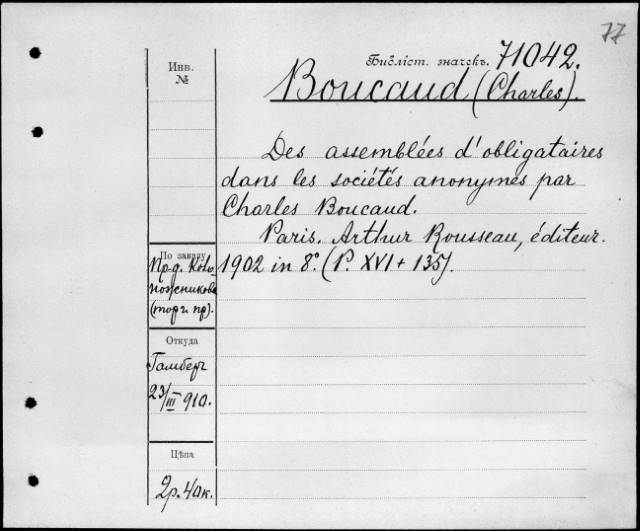 77
Библіот. значекъ. 71042.
Boucaud (Charles).
Инв.
№
Des assemblées d'obligataires
dans les sociétés anonymes par
Charles Boucaud.
Paris. Arthur Rousseau, éditeur.
1902 in 8º. (P. XVI + 135).
По заказу
Пр-д.
(торг. пр.)
Откуда
Гамберъ
23/III 910.
Цѣна
2р. 40к.